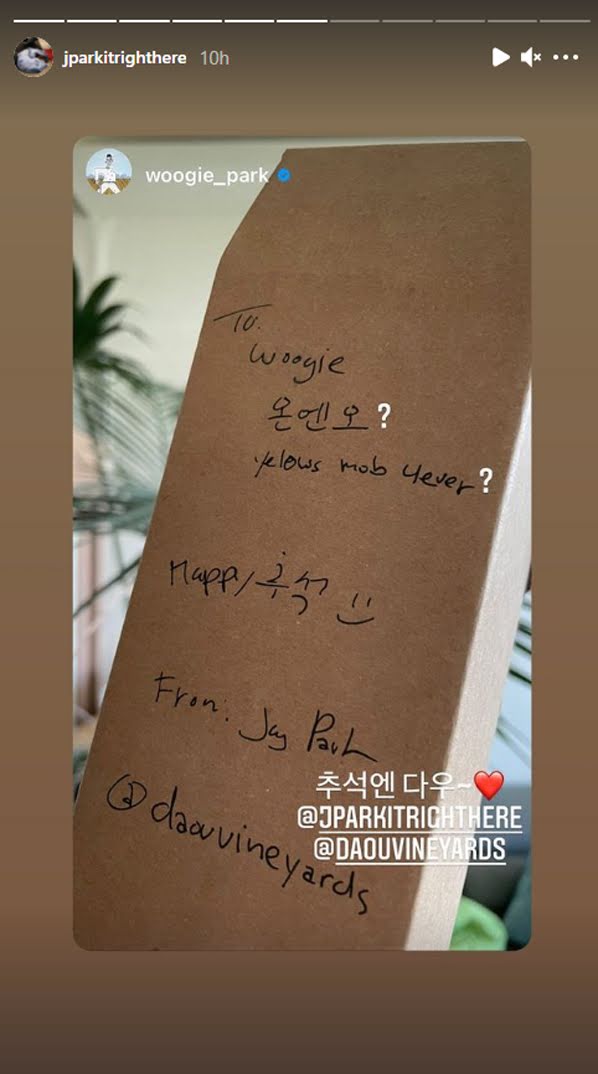 jparkitrighthere 10h
woogie_park
To.
woogie
온엔오?
yelows mob 4ever?
Happy 추석 :)
From: Jay Park
@daouvineyards
추석엔 다우~❤️
@JPARKITRIGHTHERE
@DAOUVINEYARDS